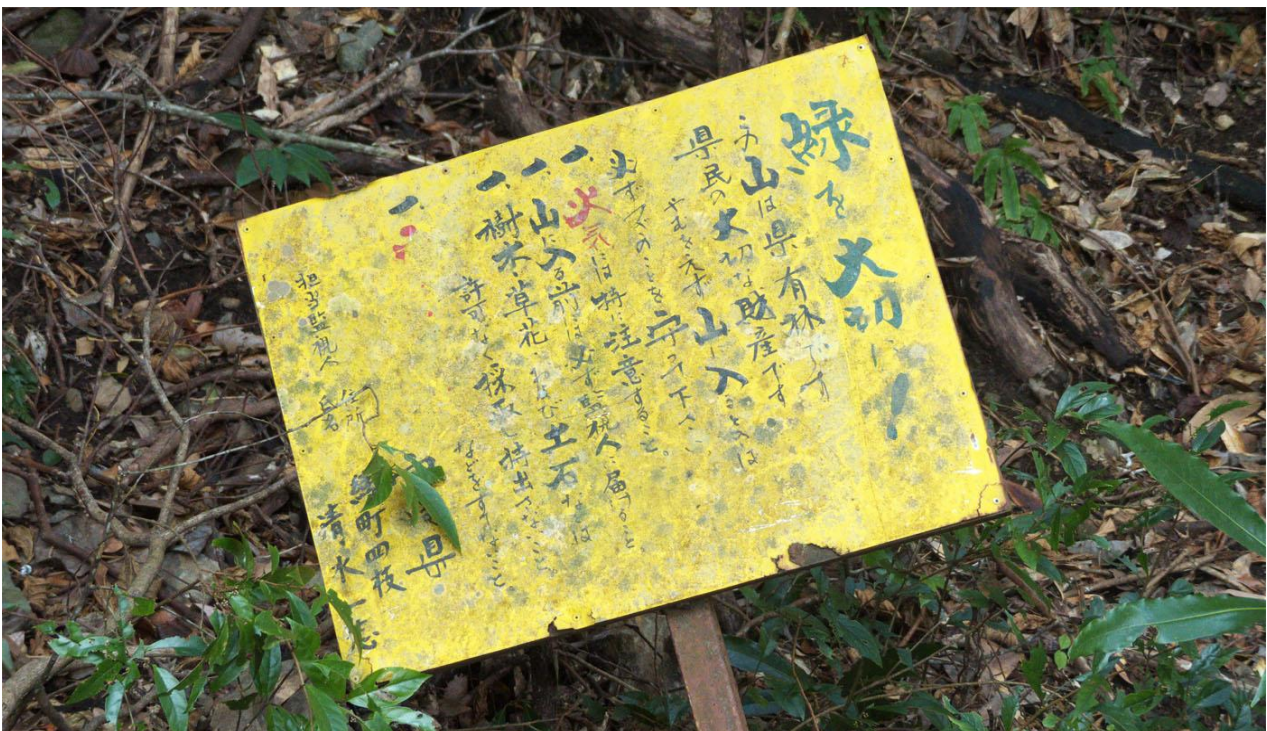 緑を大切に！
この山は県有林です
県民の大切な財産です
やむをえず山に入るときは
必ず次のことを守って下さい
一、火気には特に注意すること。
一、山に入る前には必ず監視人に届ること
一、樹木、草花、および土石などは
許可なく採取し持出さないこと。
などをすてないこと
一、
県
担当監視人
住所
町四枝
氏名
清水